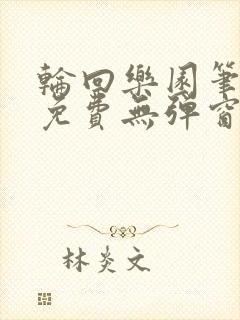 輪回樂園筆
免費無彈窗
林炎文